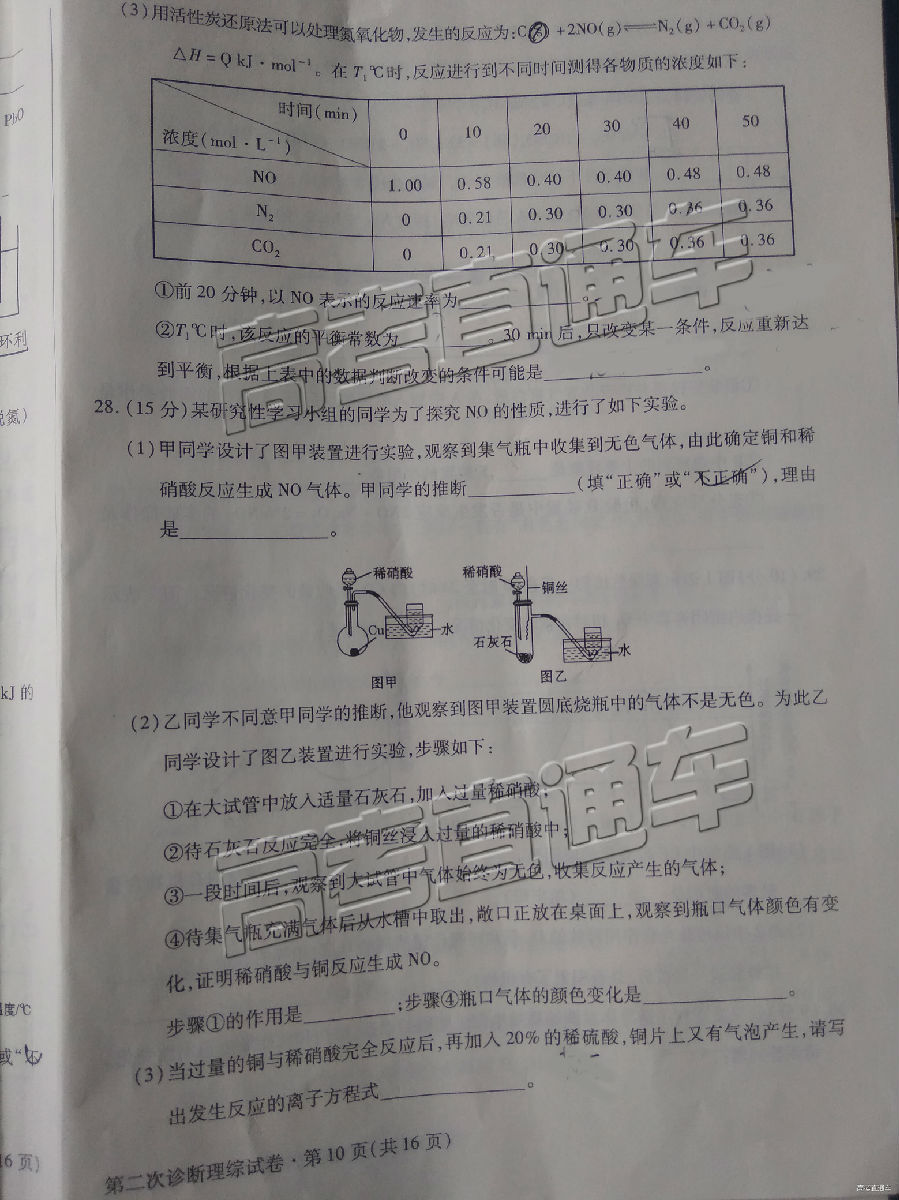 (3)用活性炭还原法可以处理氮氧化物,发生的反应为:C(s)+2NO(g)⇌N₂(g)+CO₂(g)
△H=QkJ·mol⁻¹。在T₁℃时,反应进行到不同时间测得各物质的浓度如下:
时间(min)
浓度(mol·L⁻¹) 0 10 20 30 40 50
NO 1.00 0.58 0.40 0.40 0.48 0.48
N₂ 0 0.21 0.30 0.30 0.36 0.36
CO₂ 0 0.21 0.30 0.30 0.36 0.36
①前20分钟,以NO表示的反应速率为________。
②T₁℃时,该反应的平衡常数为________。30 min后,只改变某一条件,反应重新达
到平衡,根据上表中的数据判断改变的条件可能是________。
28.(15分)某研究性学习小组的同学为了探究NO的性质,进行了如下实验。
(1)甲同学设计了图甲装置进行实验,观察到集气瓶中收集到无色气体,由此确定铜和稀
硝酸反应生成NO气体。甲同学的推断________(填“正确”或“不正确”),理由
是________。
稀硝酸 稀硝酸
铜丝
Cu 水 石灰石 水
图甲 图乙
(2)乙同学不同意甲同学的推断,他观察到图甲装置圆底烧瓶中的气体不是无色。为此乙
同学设计了图乙装置进行实验,步骤如下:
①在大试管中放入适量石灰石,加入过量稀硝酸;
②待石灰石反应完全,将铜丝浸入过量的稀硝酸中;
③一段时间后,观察到大试管中气体始终为无色,收集反应产生的气体;
④待集气瓶充满气体后从水槽中取出,敞口正放在桌面上,观察到瓶口气体颜色有变
化,证明稀硝酸与铜反应生成NO。
步骤①的作用是________;步骤④瓶口气体的颜色变化是________。
(3)当过量的铜与稀硝酸完全反应后,再加入20%的稀硫酸,铜片上又有气泡产生,请写
出发生反应的离子方程式________。
第二次诊断理综试卷·第10页(共16页)
PbO
环利
脱氮)
kJ的
温度/℃
或“
16页)
高考直通车
高考直通车
高考直通车